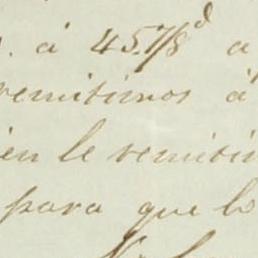 . á 45.7/8 d a
remitimos á
en le remiti
para que lo